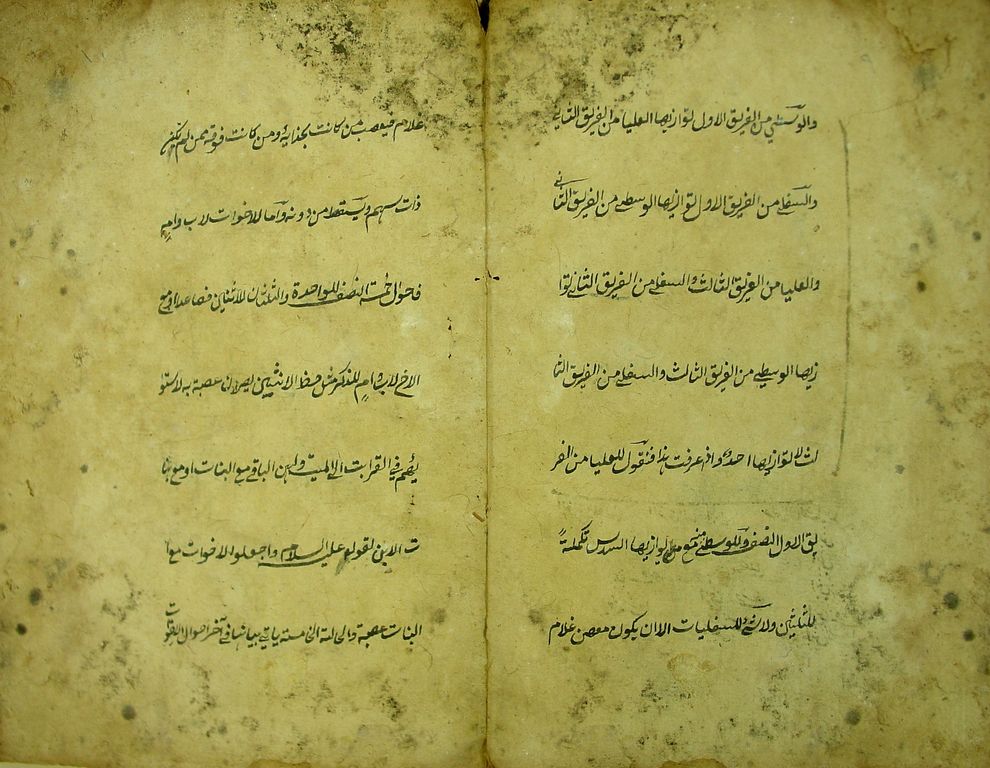 والوسطي من الفريق الاول توازيها العليا من الفريق الثاني
والسفلے من الفريق الاول توازيها الوسطے من الفريق الثانے
والعليا من الفريق الثالث والسفلے من الفريق الثانے توا
زيها الوسطے من الفريق الثالث والسفلے من الفريق الثا
لث لا توازيها احد واذ عرفت هذا فنقول للعليا من الفر
يق الاول النصف وللوسطے مع من توازيها السدس تكملة
للثلثين ولا شئ للسفليات الا ان يكون معهن غلام
غلام فيعصب من كانت بحذايه ومن كانت فوقه ممن لم تكن
ذات سهم ويسقط من دونه واما للاخوات لاب وام
فاحوال خمس النصف للواحدة والثلثان للاثنين فصاعدا ومع
الاخ لاب وام للذكر مثل حظ الانثيين يصرن عصبة به لاستو
يهم في القرابت الى الميت ولهن الباقے مع البنات او مع بنا
ت الابن لقوله عليه السلام واجعلوا الاخوات مع
البنات عصبة والحالة الخامسة ياتے بيانها في آخر احوال الاخوات